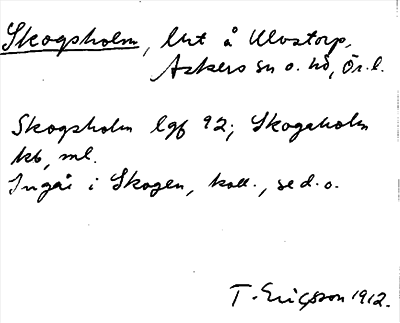 Skogsholm, lht å Ulvstorp,
Askers sn o. hd, Ör. l.
Skogsholm lgf 92; Skogsholm
kb, ml.
Ingår i Skogen, koll., se d. o.
T. Ericsson 1912.